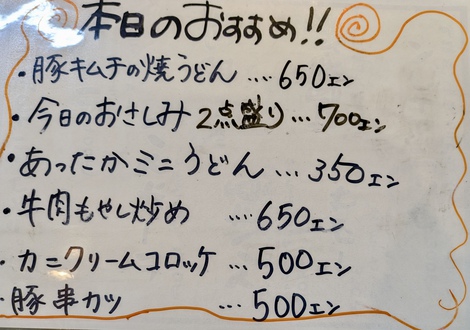 本日のおすすめ!!
・豚キムチの焼うどん ‥‥650エン
・今日のおさしみ2点盛り…700エン
・あったかミニうどん …350エン
・牛肉もやし炒め …650エン
・カニクリームコロッケ …500エン
・豚串カツ …500エン